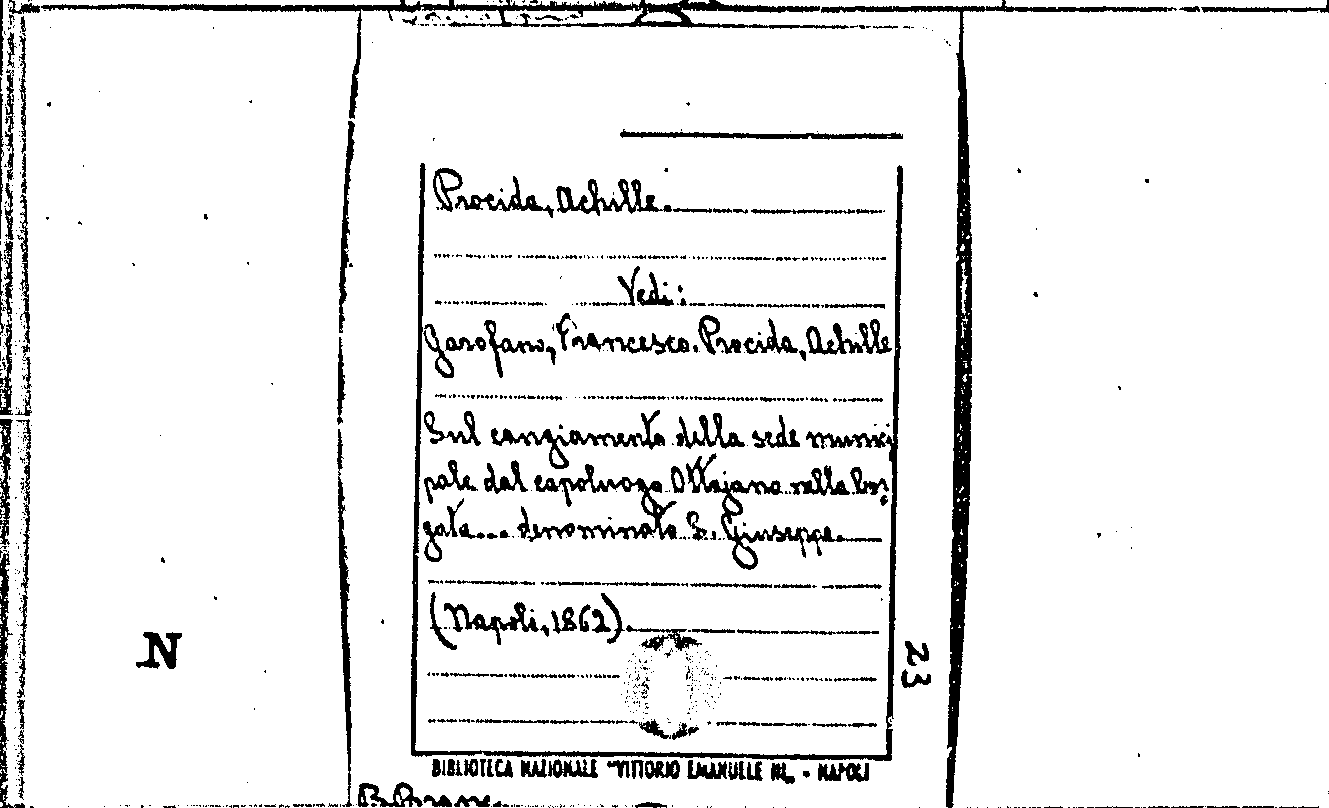 Procida, Achille.
Vedi:
Garofano, Francesco. Procida, Achille
Sul cangiamento della sede munici
pale dal capoluogo Ottajano nella bor
gata... denominata S. Giuseppe.
(Napoli, 1862).
N
23
BIBLIOTECA NAZIONALE "VITTORIO EMANUELE III„ - NAPOLI